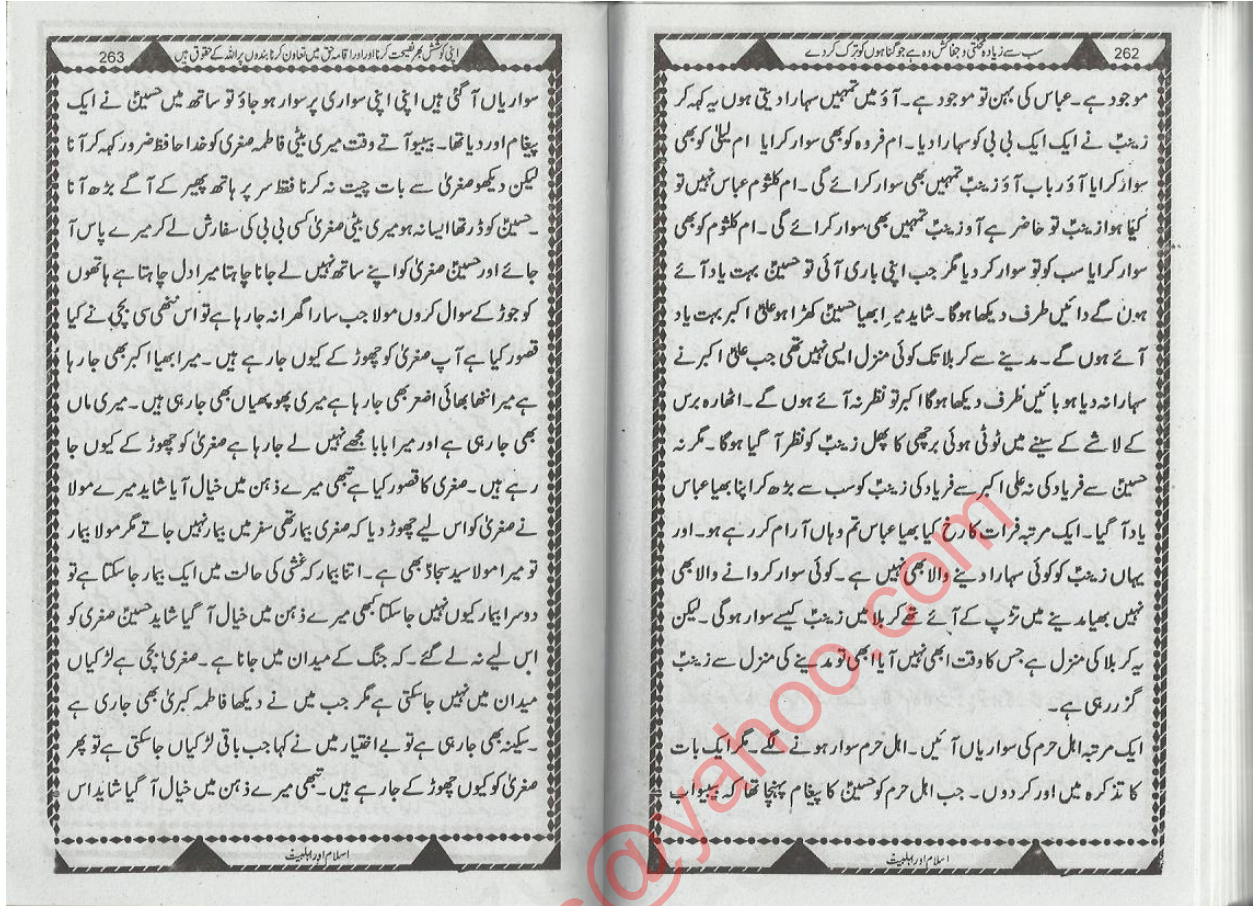 262
سب سے زیادہ محنتی و جفاکش وہ ہے جو گناہوں کو ترک کر دے
موجود ہے۔ عباس کی بہن تو موجود ہے۔ آؤ میں تمہیں سہارا دیتی ہوں یہ کہہ کر
زینبؑ نے ایک ایک بی بی کو سہارا دیا۔ ام فروہ کو بھی سوار کرایا ام لیلیٰ کو بھی
سوار کرایا آؤ رباب آؤ زینبؑ تمہیں بھی سوار کرائے گی۔ ام کلثوم عباس نہیں تو
کیا ہوا زینبؑ تو حاضر ہے آو زینبؑ تمہیں بھی سوار کرائے گی۔ ام کلثوم کو بھی
سوار کرایا سب کو تو سوار کر دیا مگر جب اپنی باری آئی تو حسینؑ بہت یاد آئے
ہون گے دائیں طرف دیکھا ہوگا۔ شاید میرا بھیا حسینؑ کھڑا ہو علیؑ اکبر بہت یاد
آئے ہوں گے۔ مدینے سے کربلا تک کوئی منزل ایسی نہیں تھی جب علیؑ اکبر نے
سہارا نہ دیا ہو بائیں طرف دیکھا ہوگا اکبر تو نظر نہ آئے ہوں گے۔ اٹھارہ برس
کے لاشے کے سینے میں ٹوٹی ہوئی برچھی کا پھل زینبؑ کو نظر آ گیا ہوگا۔ مگر نہ
حسینؑ سے فریاد کی نہ علی اکبر سے فریاد کی زینبؑ کو سب سے بڑھ کر اپنا بھیا عباس
یاد آ گیا۔ ایک مرتبہ فرات کا رخ کیا بھیا عباس تم وہاں آرام کر رہے ہو۔ اور
یہاں زینبؑ کو کوئی سہارا دینے والا بھی نہیں ہے۔ کوئی سوار کروانے والا بھی
نہیں بھیا مدینے میں تڑپ کے آئے تھے کربلا میں زینبؑ کیسے سوار ہوگی۔ لیکن
یہ کربلا کی منزل ہے جس کا وقت ابھی نہیں آیا ابھی تو مدینے کی منزل سے زینبؑ
گزر رہی ہے۔
ایک مرتبہ اہل حرم کی سواریاں آئیں۔ اہل حرم سوار ہونے لگے۔ مگر ایک بات
کا تذکرہ میں اور کر دوں۔ جب اہل حرم کو حسینؑ کا پیغام پہنچا تھا کہ بیبیو اب
اسلام اور اہلبیت
263
اپنی کوشش بھر نصیحت کرنا اور اور اقامہ حق میں تعاون کرنا بندوں پر اللہ کے حقوق ہیں
سواریاں آ گئی ہیں اپنی اپنی سواری پر سوار ہو جاؤ تو ساتھ میں حسینؑ نے ایک
پیغام اور دیا تھا۔ بیبیو آتے وقت میری بیٹی فاطمہ صغریٰ کو خدا حافظ ضرور کہہ کر آنا
لیکن دیکھو صغریٰ سے بات چیت نہ کرنا فقط سر پر ہاتھ پھیر کے آگے بڑھ آنا
۔ حسینؑ کو ڈر تھا ایسا نہ ہو میری بیٹی صغریٰ کسی بی بی کی سفارش لے کر میرے پاس آ
جائے اور حسینؑ صغریٰ کو اپنے ساتھ نہیں لے جانا چاہتا میرا دل چاہتا ہے ہاتھوں
کو جوڑ کے سوال کروں مولا جب سارا گھرانہ جا رہا ہے تو اس ننھی سی بچی نے کیا
قصور کیا ہے آپ صغریٰ کو چھوڑ کے کیوں جا رہے ہیں۔ میرا بھیا اکبر بھی جا رہا
ہے میرا ننھا بھائی اضغر بھی جا رہا ہے میری پھوپھیاں بھی جا رہی ہیں۔ میری ماں
بھی جا رہی ہے اور میرا بابا مجھے نہیں لے جا رہا ہے صغریٰ کو چھوڑ کے کیوں جا
رہے ہیں۔ صغریٰ کا قصور کیا ہے تبھی میرے ذہن میں خیال آیا شاید میرے مولا
نے صغریٰ کو اس لیے چھوڑ دیا کہ صغریٰ بیمار تھی سفر میں بیمار نہیں جاتے مگر مولا بیمار
تو میرا مولا سید سجادؑ بھی ہے۔ اتنا بیمار کہ غشی کی حالت میں ایک بیمار جا سکتا ہے تو
دوسرا بیمار کیوں نہیں جا سکتا کبھی میرے ذہن میں خیال آ گیا شاید حسینؑ صغریٰ کو
اس لیے نہ لے گئے۔ کہ جنگ کے میدان میں جانا ہے۔ صغریٰ بچی ہے لڑکیاں
میدان میں نہیں جا سکتی ہے مگر جب میں نے دیکھا فاطمہ کبریٰ بھی جاری ہے
۔ سکینہ بھی جا رہی ہے تو بے اختیار میں نے کہا جب باقی لڑکیاں جا سکتی ہے تو پھر
صغریٰ کو کیوں چھوڑ کے جا رہے ہیں۔ تبھی میرے ذہن میں خیال آ گیا شاید اس
اسلام اور اہلبیت
s@yahoo.com